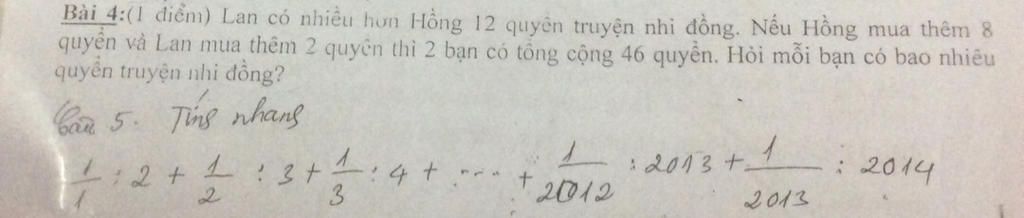 Bài 4:(1 điểm) Lan có nhiều hơn Hồng 12 quyển truyện nhi đồng. Nếu Hồng mua thêm 8
quyển và Lan mua thêm 2 quyển thì 2 bạn có tổng cộng 46 quyển. Hỏi mỗi bạn có bao nhiêu
quyển truyện nhi đồng?
Câu 5. Tính nhanh
1/1 : 2 + 1/2 : 3 + 1/3 : 4 + .... + 1/2012 : 2013 + 1/2013 : 2014